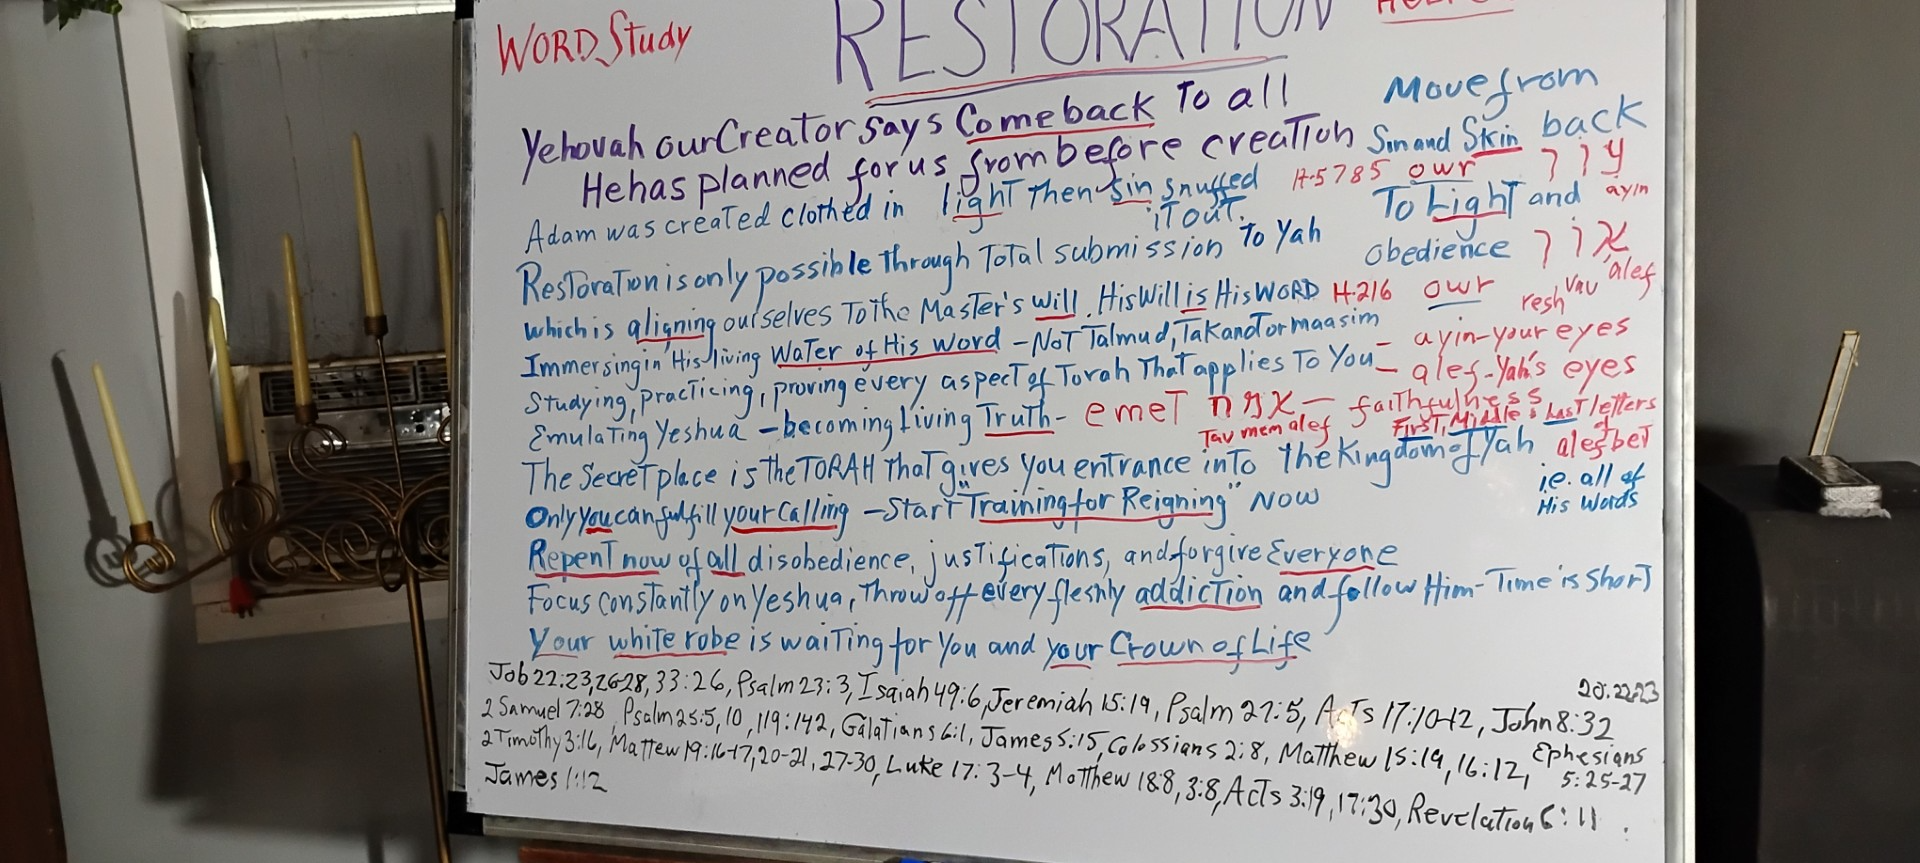 WORD Study
RESTORATION
Yehovah our Creator says Come back To all
He has planned for us from before creation
Adam was created clothed in light Then sin snuffed
iT ouT.
Restoration is only possible through Total submission To Yah
which is aligning ourselves To the Master's Will. His Will is His WORD
Immersing in His living Water of His Word - NoT Talmud, Takanot or maasim
Studying, practicing, proving every aspecT of Torah ThaT applies To You
Emulating Yeshua - becoming Living Truth - emeT תמא - faithfulness
Tav mem alef First, Middle & Last letters
of
alefbeT
ie. all of
His Words
The Secret place is the TORAH ThaT gives you entrance into the Kingdom of Yah
Only you can fulfill your Calling - Start "Training for Reigning" Now
Repent now of all disobedience, justifications, and forgive Everyone
Focus constantly on Yeshua, Throw off every fleshly addiction and follow Him - Time is short
Your white robe is waiting for you and your Crown of Life
Move from
Sin and Skin back
H-5785 owr רוע
ayin
To Light and
obedience רוא
H-216 owr resh vav alef
- ayin - your eyes
- alef - Yah's eyes
Job 22:23,26-28, 33:26, Psalm 23:3, Isaiah 49:6, Jeremiah 15:19, Psalm 27:5, Acts 17:10-12, John 8:32
20:22-23
2 Samuel 7:28, Psalm 25:5,10, 119:142, Galatians 6:1, James 5:15, Colossians 2:8, Matthew 15:19, 16:12, Ephesians
5:25-27
2 Timothy 3:16, Mattew 19:16-17,20-21, 27-30, Luke 17:3-4, Matthew 18:8, 3:8, Acts 3:19, 17:30, Revelation 6:11
James 1:12